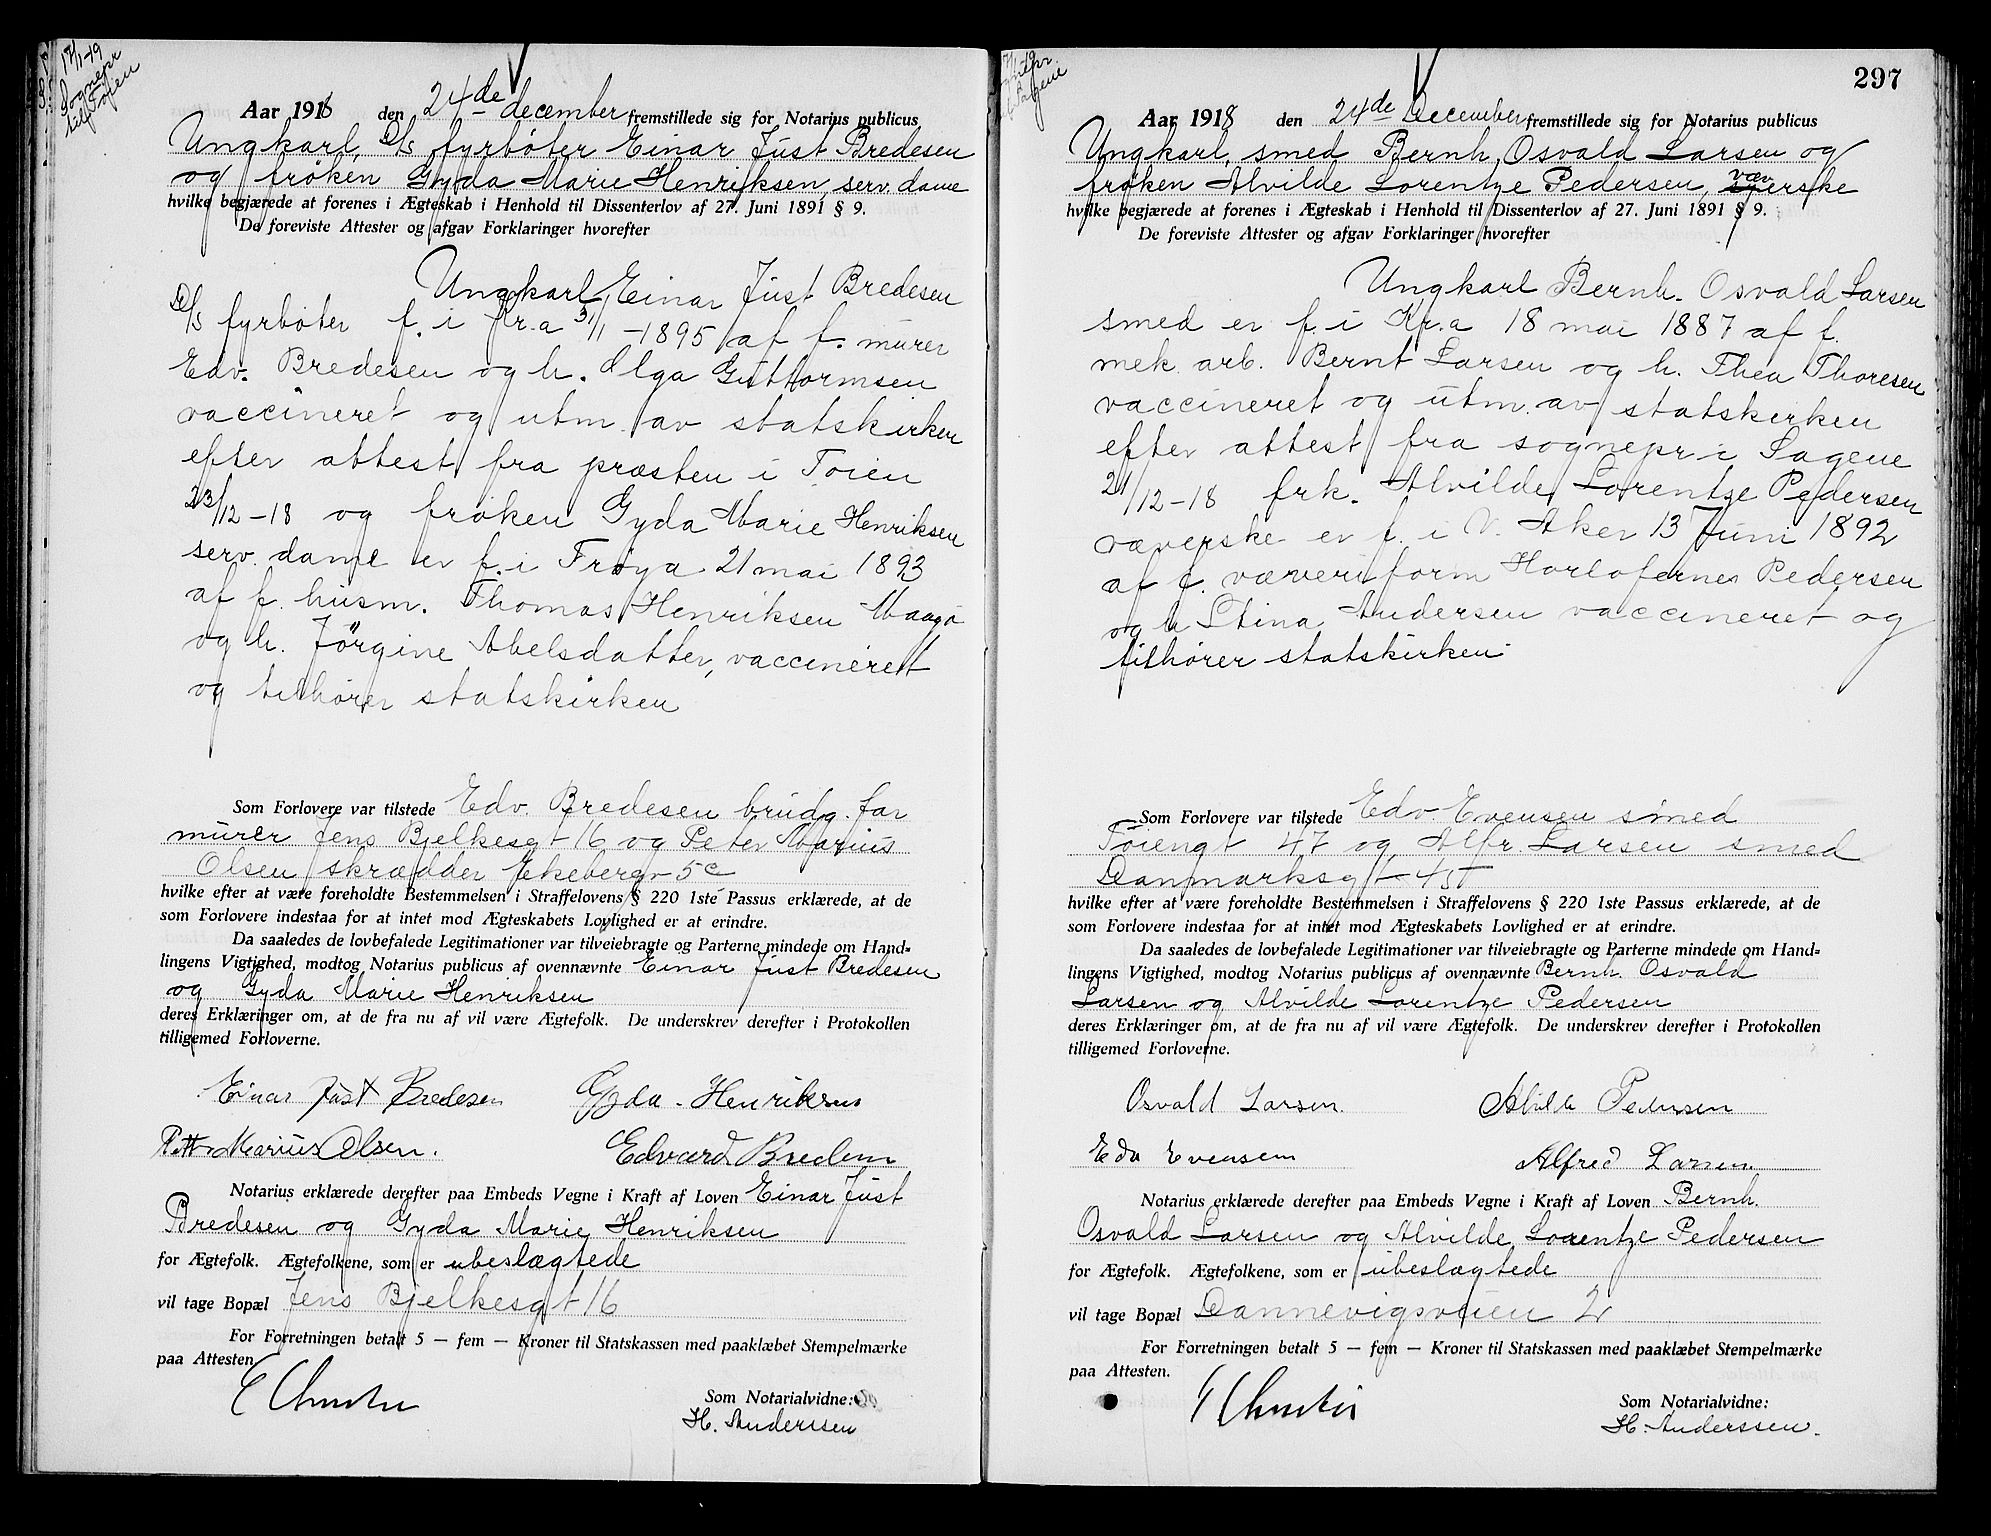 17/1-19
Sognepr
til Toien
Aar 1918 den 24de december fremstillede sig for Notarius publicus
Ungkarl, D/S fyrbøter Einar Just Bredesen
og frøken Gyda Marie Henriksen, serv. dame
hvilke begjærede at forenes i Ægteskab i Henhold til Dissenterlov af 27. Juni 1891 § 9.
De foreviste Attester og afgav Forklaringer hvorefter
Ungkarl Einar Just Bredesen
D/S fyrbøter f. i Kr.a 31/1-1895 af f. murer
Edv. Bredesen og h. Olga Guttormsen
vaccineret og utm. av statskirken
efter attest fra præsten i Toien
23/12-18 og frøken Gyda Marie Henriksen
serv. dame er f. i Frøya 21 mai 1893
af f. husm. Thomas Henriksen Maagø
og h. Jörgine Abelsdatter, vaccineret
og tilhører statskirken
Som Forlovere var tilstede Edv. Bredesen brudg. far
murer Jens Bjelkesgt 16 og Peter Marius
Olsen skrædder Ekebergv 5c
hvilke efter at være foreholdte Bestemmelsen i Straffelovens § 220 1ste Passus erklærede, at de
som Forlovere indestaa for at intet mod Ægteskabets Lovlighed er at erindre.
Da saaledes de lovbefalede Legitimationer var tilveiebragte og Parterne mindede om Hand-
lingens Vigtighed, modtog Notarius publicus af ovennævnte Einar Just Bredesen
og Gyda Marie Henriksen
deres Erklæringer om, at de fra nu af vil være Ægtefolk. De underskrev derefter i Protokollen
tilligemed Forloverne.
Einar Just Bredesen Gyda Henriksen
Petter Marius Olsen. Edvard Bredesen
Notarius erklærede derefter paa Embeds Vegne i Kraft af Loven Einar Just
Bredesen og Gyda Marie Henriksen
for Ægtefolk. Ægtefolkene, som er ubeslægtede
vil tage Bopæl Jens Bjelkesgt 16
For Forretningen betalt 5 — fem — Kroner til Statskassen med paaklæbet Stempelmærke
paa Attesten.
Som Notarialvidne:
H. Anderssen
297
17/1-19
Aar 1918 den 24de December fremstillede sig for Notarius publicus
Ungkarl, smed Bernh. Osvald Larsen og
frøken Alvilde Lorentze Pedersen, væverske
hvilke begjærede at forenes i Ægteskab i Henhold til Dissenterlov af 27. Juni 1891 § 9.
De foreviste Attester og afgav Forklaringer hvorefter
Ungkarl Bernh. Osvald Larsen
smed er f. i Kr.a 18 mai 1887 af f.
mek. arb. Bernt Larsen og h. Thea Thoresen
vaccineret og utm. av statskirken
efter attest fra sognepr i Sagene
21/12-18 frk. Alvilde Lorentze Pedersen
væverske er f. i V. Aker 13 Juni 1892
af f. væveriform Horlofernes Pedersen
og h Stina Andersen vaccineret og
tilhører statskirken
Som Forlovere var tilstede Edv. Evensen smed
Toiengt 47 og Alfr. Larsen smed
Danmarksgt 45
hvilke efter at være foreholdte Bestemmelsen i Straffelovens § 220 1ste Passus erklærede, at de
som Forlovere indestaa for at intet mod Ægteskabets Lovlighed er at erindre.
Da saaledes de lovbefalede Legitimationer var tilveiebragte og Parterne mindede om Hand-
lingens Vigtighed, modtog Notarius publicus af ovennævnte Bernh. Osvald
Larsen og Alvilde Lorentze Pedersen
deres Erklæringer om, at de fra nu af vil være Ægtefolk. De underskrev derefter i Protokollen
tilligemed Forloverne.
Osvald Larsen. Alvilde Pedersen
Edv Evensen Alfred Larsen
Notarius erklærede derefter paa Embeds Vegne i Kraft af Loven Bernh.
Osvald Larsen og Alvilde Lorentze Pedersen
for Ægtefolk. Ægtefolkene, som er ubeslægtede
vil tage Bopæl Dannevigsveien 2
For Forretningen betalt 5 — fem — Kroner til Statskassen med paaklæbet Stempelmærke
paa Attesten.
Som Notarialvidne:
H. Anderssen.